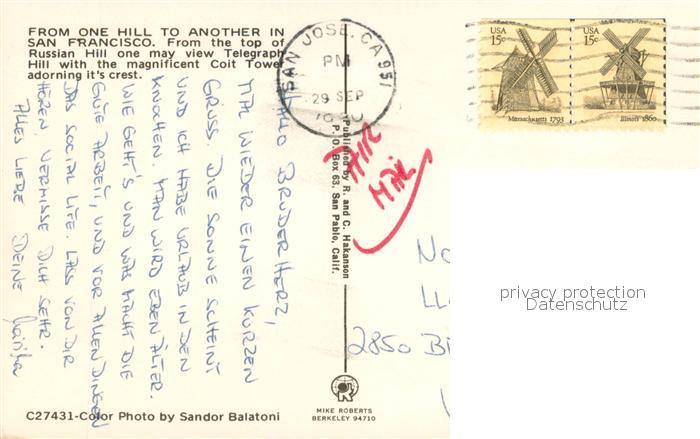 FROM ONE HILL TO ANOTHER IN
SAN FRANCISCO. From the top of
Russian Hill one may view Telegraph
Hill with the magnificent Coit Tower
adorning it's crest.
SAN JOSE, CA 951
PM
29 SEP
USA
15c
Massachusetts 1793
USA
15c
Illinois 1860
AIR
MAIL
HALLO BRUDERHERZ,
MAL WIEDER EINEN KURZEN
GRUSS. DIE SONNE SCHEINT
UND ICH HABE URLAUB IN DEN
KNOCHEN. MAN WIRD EBEN ÄLTER.
WIE GEHT'S UND WAS MACHT DIE
GUTE ARBEIT, UND VOR ALLEN DINGEN
DAS SOCIAL LIFE. LASS VON DIR
HÖREN VERMISSE DICH SEHR.
ALLES LIEBE DEINE
Published by R. and C. Hakanson
P. O. Box 63, San Pablo, Calif.
No
LL
2850 B
privacy protection
Datenschutz
C27431-Color Photo by Sandor Balatoni
MIKE ROBERTS
BERKELEY 94710